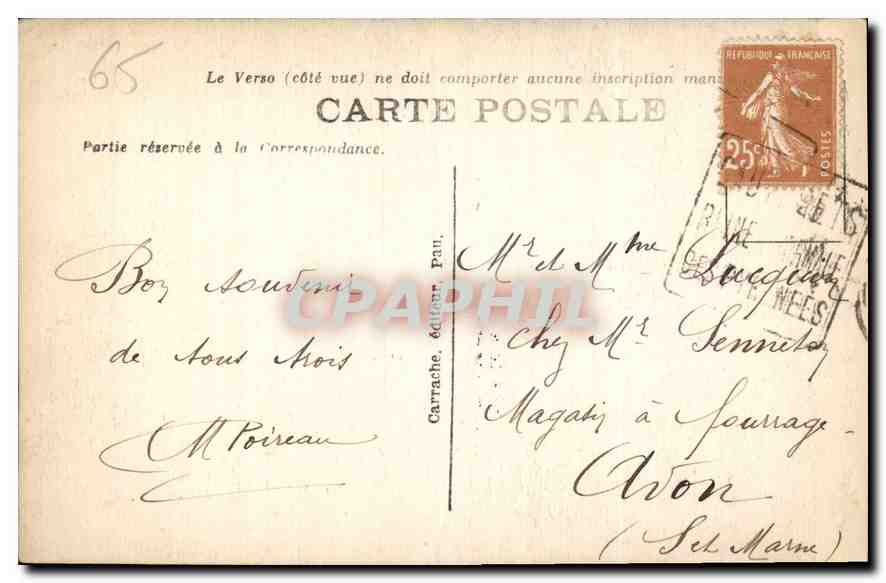 65
Le Verso (côté vue) ne doit comporter aucune inscription
CARTE POSTALE
Partie réservée à la Correspondance.
REPUBLIQUE FRANÇAISE
25c
POSTES
Bon souvenir
de tous trois
M Poireau
Carrache, éditeur, Pau.
CPAPHIL
Mr et Mme
chez Mr. Senneton
Magasin à fourrage
Avon
(S et Marne)